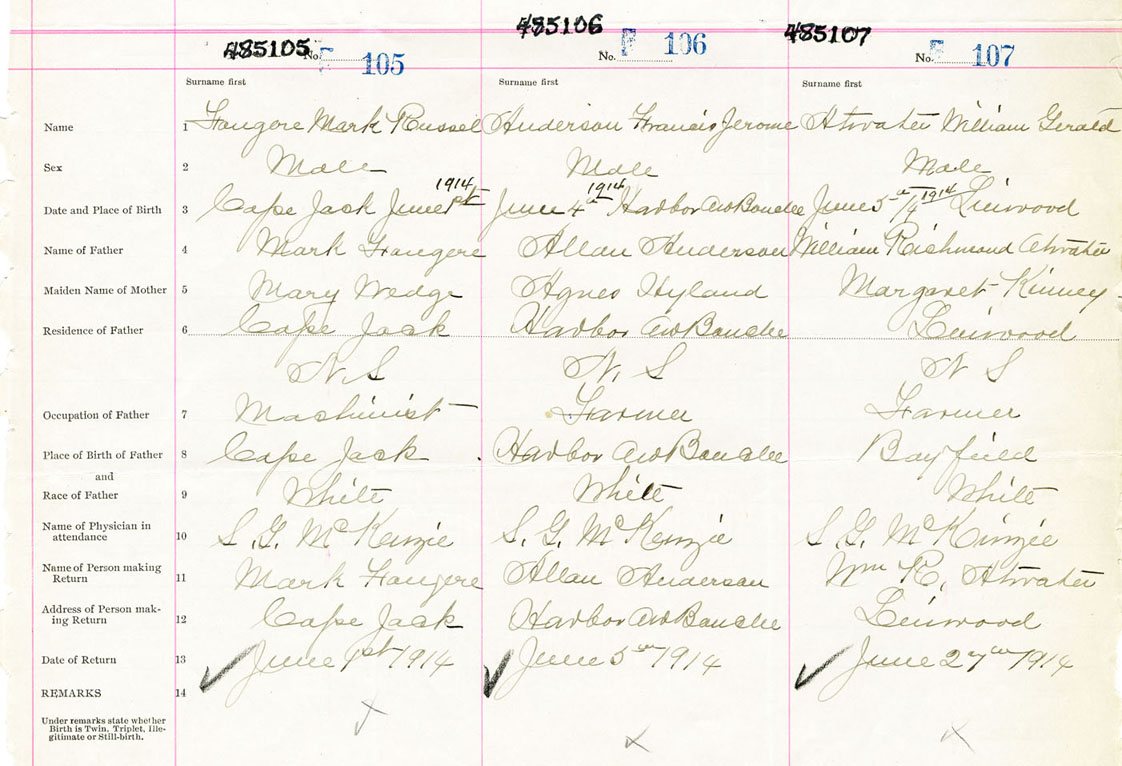 485105 485106 485107
No. F 105 No. F 106 No. F 107
Surname first Surname first Surname first
Name 1 Fougere Mark Russel Anderson Francis Jerome Atwater William Gerald
Sex 2 Male Male Male
1914 1914 1914
Date and Place of Birth 3 Cape Jack June 1st June 4th Harbor Au Bouchee June 5th /14 Linwood
Name of Father 4 Mark Fougere Allan Anderson William Richmond Atwater
Maiden Name of Mother 5 Mary Wedge Agnes Hyland Margaret Kinney
Residence of Father 6 Cape Jack Harbor Au Bouchee Linwood
N. S N. S N S
Occupation of Father 7 Machinist Farmer Farmer
Place of Birth of Father 8 Cape Jack Harbor Au Bouchee Bayfield
and
Race of Father 9 White White White
Name of Physician in
attendance 10 S. G. McKenzie S. G. McKenzie S. G. McKinzie
Name of Person making
Return 11 Mark Fougere Allan Anderson Wm R. Atwater
Address of Person mak-
ing Return 12 Cape Jack Harbor Au Bouchee Linwood
Date of Return 13 June 1st 1914 June 5th 1914 June 27th 1914
REMARKS 14
Under remarks state whether
Birth is Twin, Triplet, Ille-
gitimate or Still-birth.